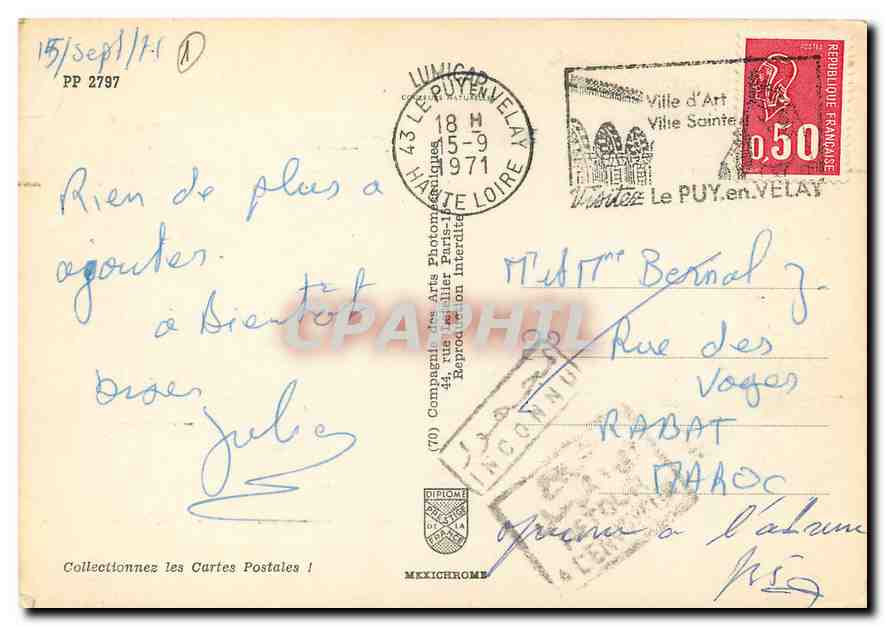 15/Sept/71 1
PP 2797
LUMICAP
COULEURS NATURELLES
43 LE PUY EN VELAY
18 H
15-9
1971
HAUTE LOIRE
Ville d'Art
Ville Sainte
Visitez Le PUY.en.VELAY
POSTES
REPUBLIQUE FRANÇAISE
0,50
Rien de plus a
ajouter.
a Bientôt
Julia
(70) Compagnie des Arts Photomécaniques
44, rue Letellier Paris-15e
Reproduction interdite
CPAPHIL
Mr et Mme Bernal J.
Rue des
Voges
RABAT
MAROC
INCONNU
RETOUR
A L'ENVOYEUR
inconnu a l'adresse
DIPLOME
PRESTIGE
DE LA
FRANCE
MEXICHROME
Collectionnez les Cartes Postales !